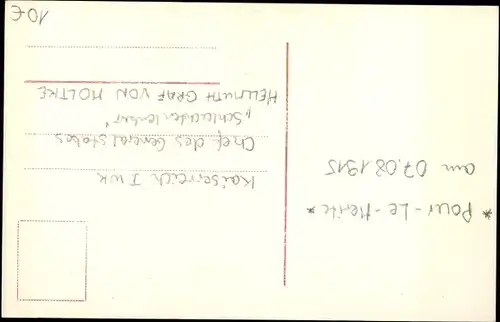 * Pour - Le - Merite *
am 07.08.1915
Kaiserreich I WK
Chef des Generalstabes
"Schlachtenlenker"
HELLMUTH GRAF VON MOLTKE
10€